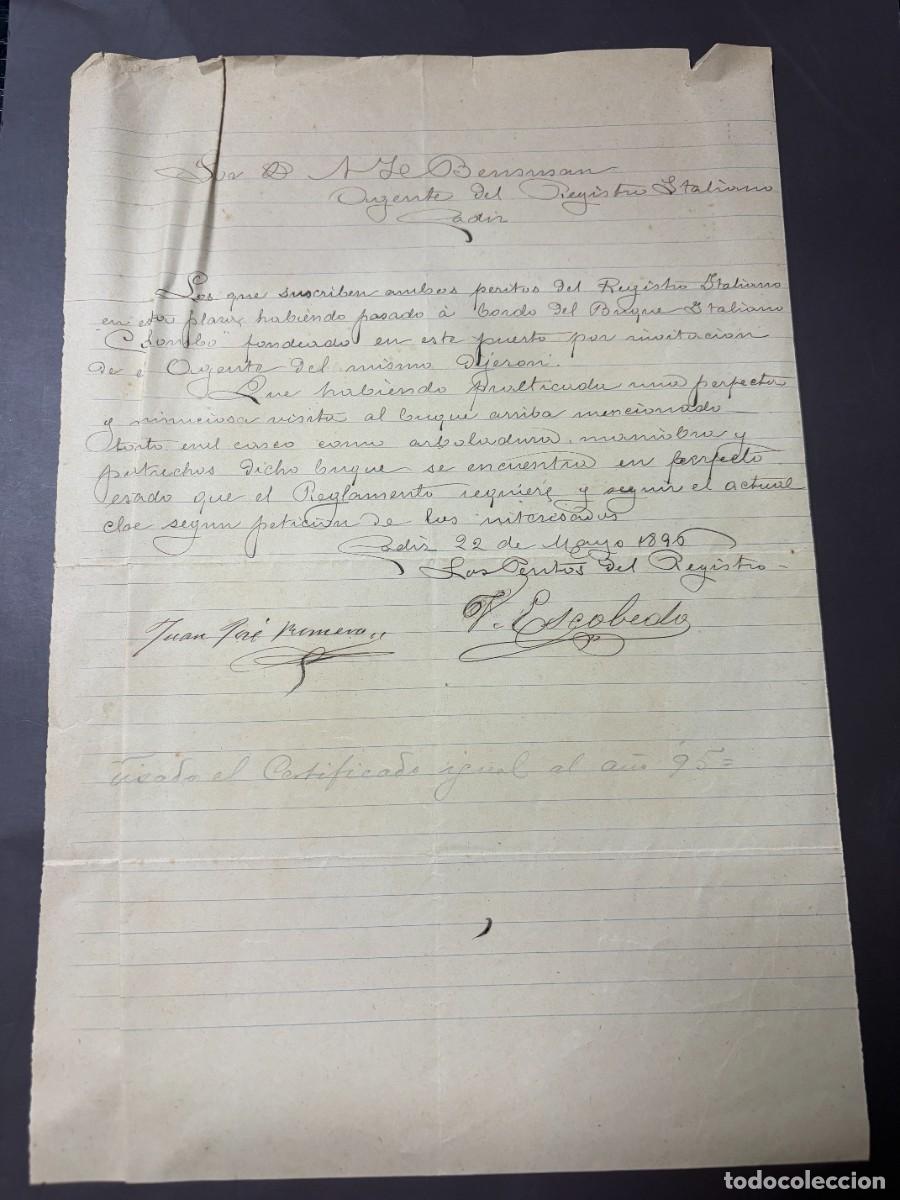 Sor D A H Bensusan
Agente del Registro Italiano
Cadiz
Los que suscriben ambos peritos del Registro Italiano
en esta plaza, habiendo pasado à bordo del Buque Italiano
" fondeado en este puerto por invitacion
de e Agente del mismo dijeron:
Que habiendo practicada una perfecta
y minuciosa visita al buque arriba mencionado
tanto en el casco como arboladura, maniobra y
petrechos dicho buque se encuentra en perfecto
esado que el Reglamento requiere y seguir el actual
clae segun peticion de los interesados
Cadiz 22 de Mayo 1896
Los Peritos del Registro
Juan José Romero
V. Escobedo
Visado el Certificado igual al año 95=
todocoleccion